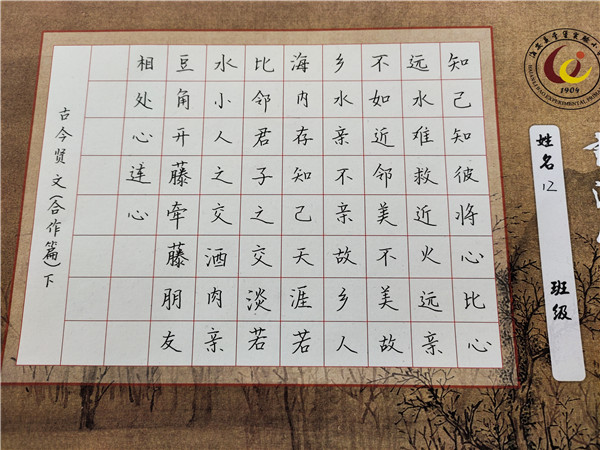 知己知彼将心比心
远水难救近火远亲
不如近邻美不美故
乡水亲不亲故乡人
海内存知己天涯若
比邻君子之交淡若
水小人之交酒肉亲
豆角开藤牵藤朋友
相处心连心
古今贤文(合作篇)下
1904
姓名 12 班级